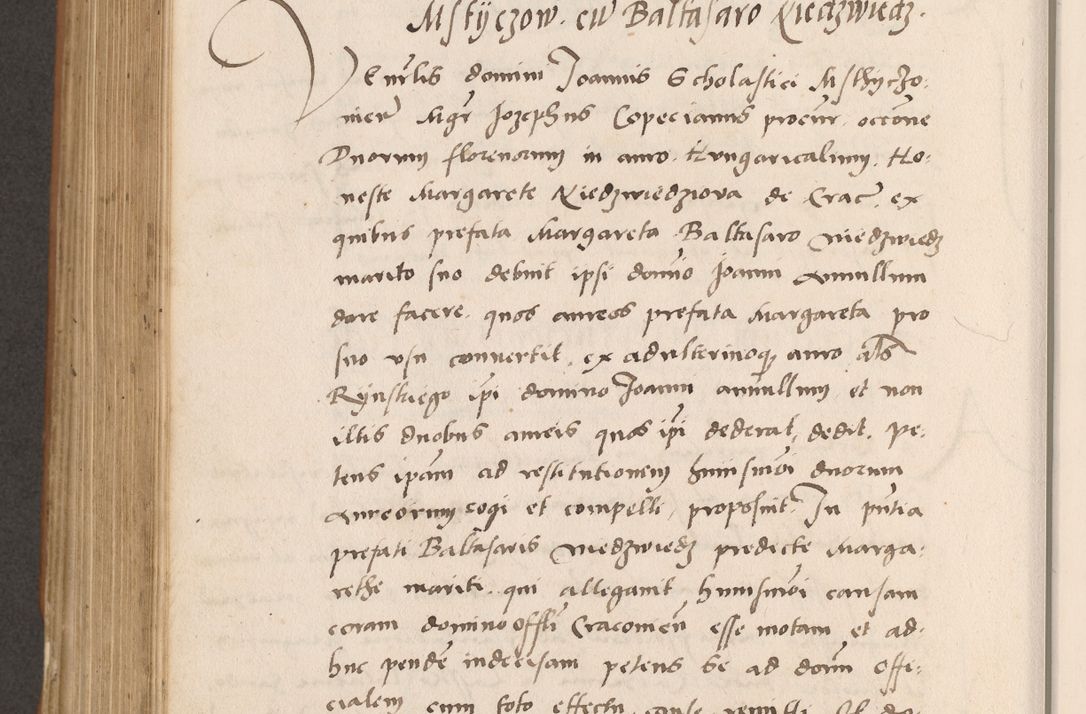 Mstyczow. cu Baltasaro Niedzwiedz.
Venrlis domini Joannis Scholastici Msthyczo-
vien Mgr Jozephus Copecianus procur. occone
Duorum florenorum in auro. Hungaricalium. Ho-
neste Margarete Niedzwiedziova de Crac. ex
quibus prefata Margareta Baltasaro niedzwiedz
marito suo debuit ipsi domino Joanni Annullum
dare facere. quos aureos prefata Margareta pro
suo usu convertit. ex adulterinoq auro als
Rynskiego ipi domino Joanni annullum et non
illis duobus aureis quos ipi dederat, dedit. Pe-
tens ipam ad restitutionem huiusmoi duorum
Aureorum cogi et compelli, proposuit. In pntia
prefati Baltasaris niedzwiedz predicte Marga-
rethe mariti. qui allegavit huiusmoi causam
coram domino offli Cracovien esse motam et ad-
huc penden indecisam petens se ad domin offi-
cialem cum toto effectu cause remitti.